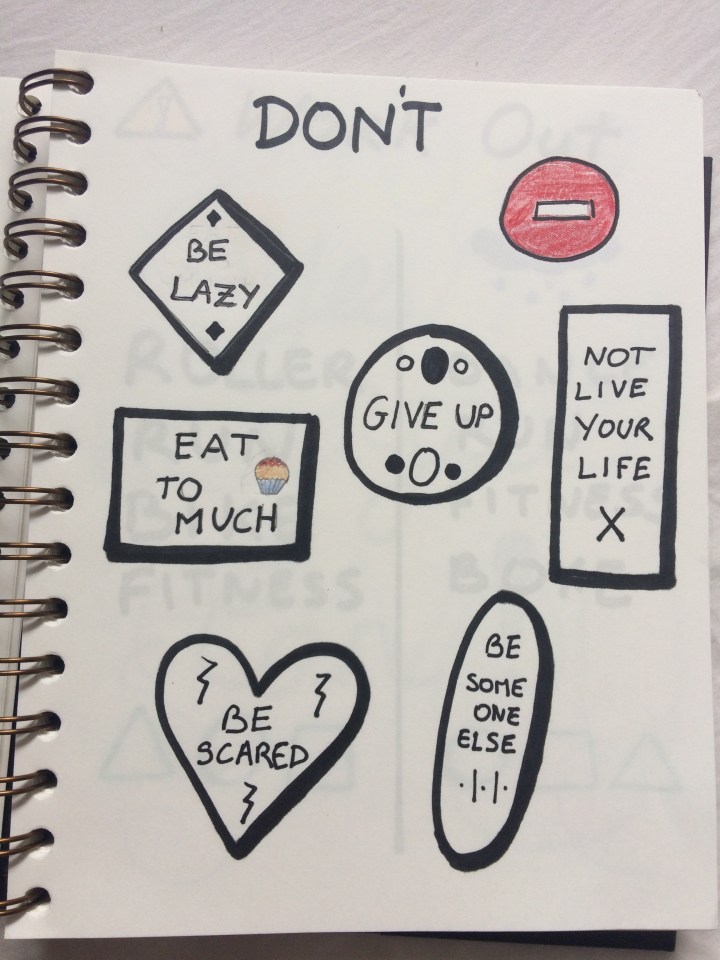 DON'T
BE
LAZY
GIVE UP
NOT
LIVE
YOUR
LIFE
X
EAT
TO
MUCH
BE
SCARED
BE
SOME
ONE
ELSE